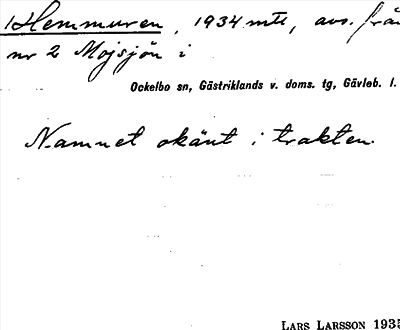 Hemmuren, 1934 mtl, avs. från
nr 2 Mojsjön i
Ockelbo sn, Gästriklands v. doms. tg, Gävleb. l.
Namnet okänt i trakten.
LARS LARSSON 1935